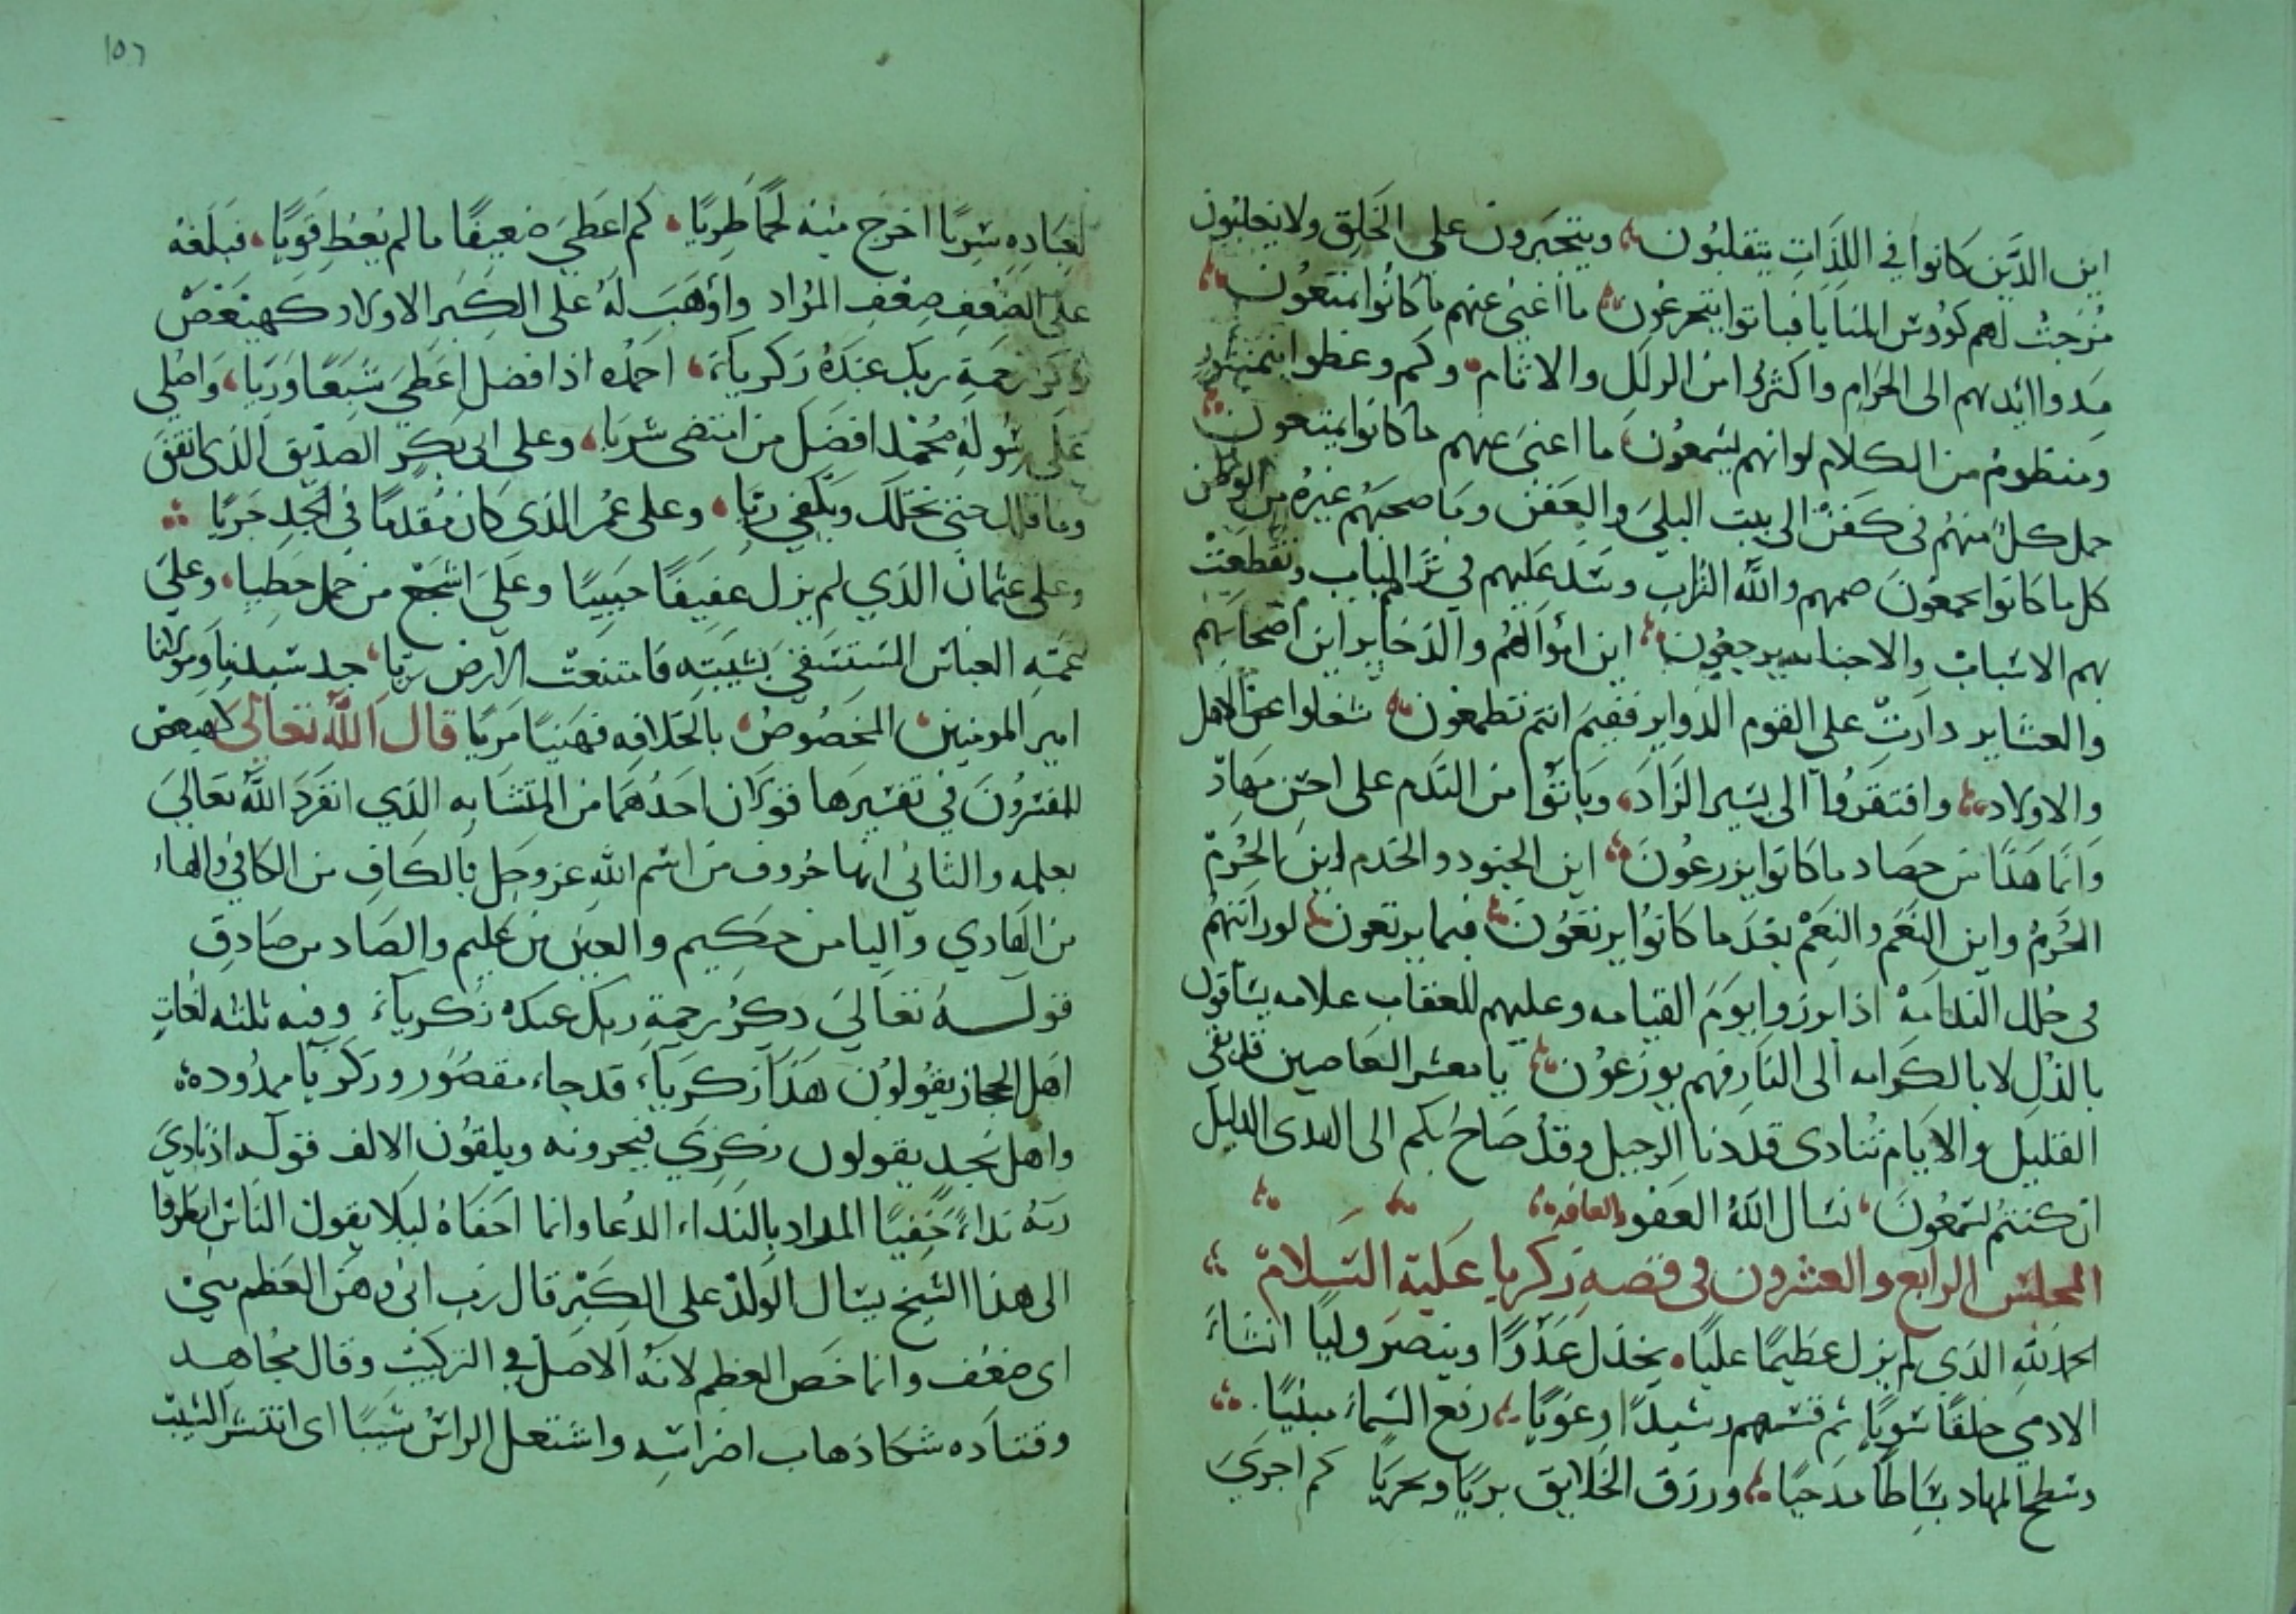 اين الذين كانوا في اللذات يتقلبون ويتجبرون على الخلق ولا يغلبون
مزجت لهم كؤوس المنايا فباتوا يتجرعون ما اغنى عنهم ما كانوا يمتعون
مدوا ايديهم الى الحرام واكثروا من الزلل والاثام وكم وعظوا بمنثور
ومنظوم من الكلام لو انهم يسمعون ما اغنى عنهم ما كانوا يمتعون
حمل كل منهم في كفن الى بيت البلى والعفن وما صحبهم غيره من الوطن
كل ما كانوا يجمعون ضمهم والله التراب وسد عليهم في ثر المباب وتقطعت
بهم الاسباب والاحباب يرجعون اين اموالهم والذخاير اين اصحابهم
والعشاير دارت على القوم الدواير ففيم انتم تطمعون شغلوا عن الاهل
والاولاد وافتقروا الى يسير الزاد وباتوا من الندم على احسن مهاد
وانما هذا من حصاد ما كانوا يزرعون اين الجنود والخدم اين الحرم
الحرم واين النعم والنعم بعد ما كانوا يرتعون فيما يرتعون لو رايتهم
في حلل الندامه اذا برزوا يوم القيامه وعليهم للعقاب علامه يساقون
بالذل لا بالكرامه الى النار فهم يوزعون يا معشر العاصين قد بقي
القليل والايام تنادى قد دنا الرحيل وقد صاح بكم الى الهدى الدليل
ان كنتم تسمعون نسال الله العفو والعافيه
المجلس الرابع والعشرون في قصه زكريا عليه السلام
الحمد لله الذي لم يزل عظيما عليا يخذل عدوا وينصر وليا انشاء
الادمي خلقا سويا ثم قسمهم رشيدا وغويا رفع السماء مبنيا
وسطح المهاد بساطا مدحيا ورزق الخلايق بريا وبحريا كم اجرى
لعباده سريا اخرج منه لحما طريا كم اعطى ضعيفا ما لم يعط قويا فبلغه
على الضعف ضعف المراد واوهب له على الكبر الاولاد كهيعص
ذكر رحمة ربك عبده زكرياء احمده اذا فضل اعطى شبعا وريا واصلي
على رسوله محمد افضل من امتضى سريا وعلى ابى بكر الصديق الذى انفق
وما قلل حتى تخلل ويكفي زيا وعلى عمر الذي كان مقدما في الجد جريا
وعلى عثمان الذي لم يزل عفيفا حييا وعلى اشجع من حمل خطيا وعلى
عمه العباس المستسقي بشيبته فامتنعت الارض ريا جد سيدنا ومولانا
امير المومنين المخصوص بالخلافه فهنيا مريا قال الله تعالى كهيعص
للمفسرون في تفسيرها قولان احدهما من المتشابه الذي انفرد الله تعالى
بعلمه والثاني انها حروف من اسم الله عز وجل فالكاف من الكافي والهاء
من الهادي واليا من حكيم والعين من عليم والصاد من صادق
قوله تعالى ذكر رحمة ربك عبده زكرياء وفيه ثلثه لغات
اهل الحجاز يقولون هذا زكرياء قد جاء مقصور وزكريا ممدوده
واهل نجد يقولون زكري فيجرونه ويلقون الالف قوله اذ نادى
ربه نداء خفيا المراد بالنداء الدعا وانما اخفاه ليلا يقول الناس انظروا
الى هذا الشيخ يسال الولد على الكبر قال رب اني وهن العظم مني
اى ضعف وانما خص العظم لانه الاصل في التركيب وقال مجاهد
وقتاده شكا ذهاب اضراسه واشتعل الراس شيبا اى انتشر الشيب